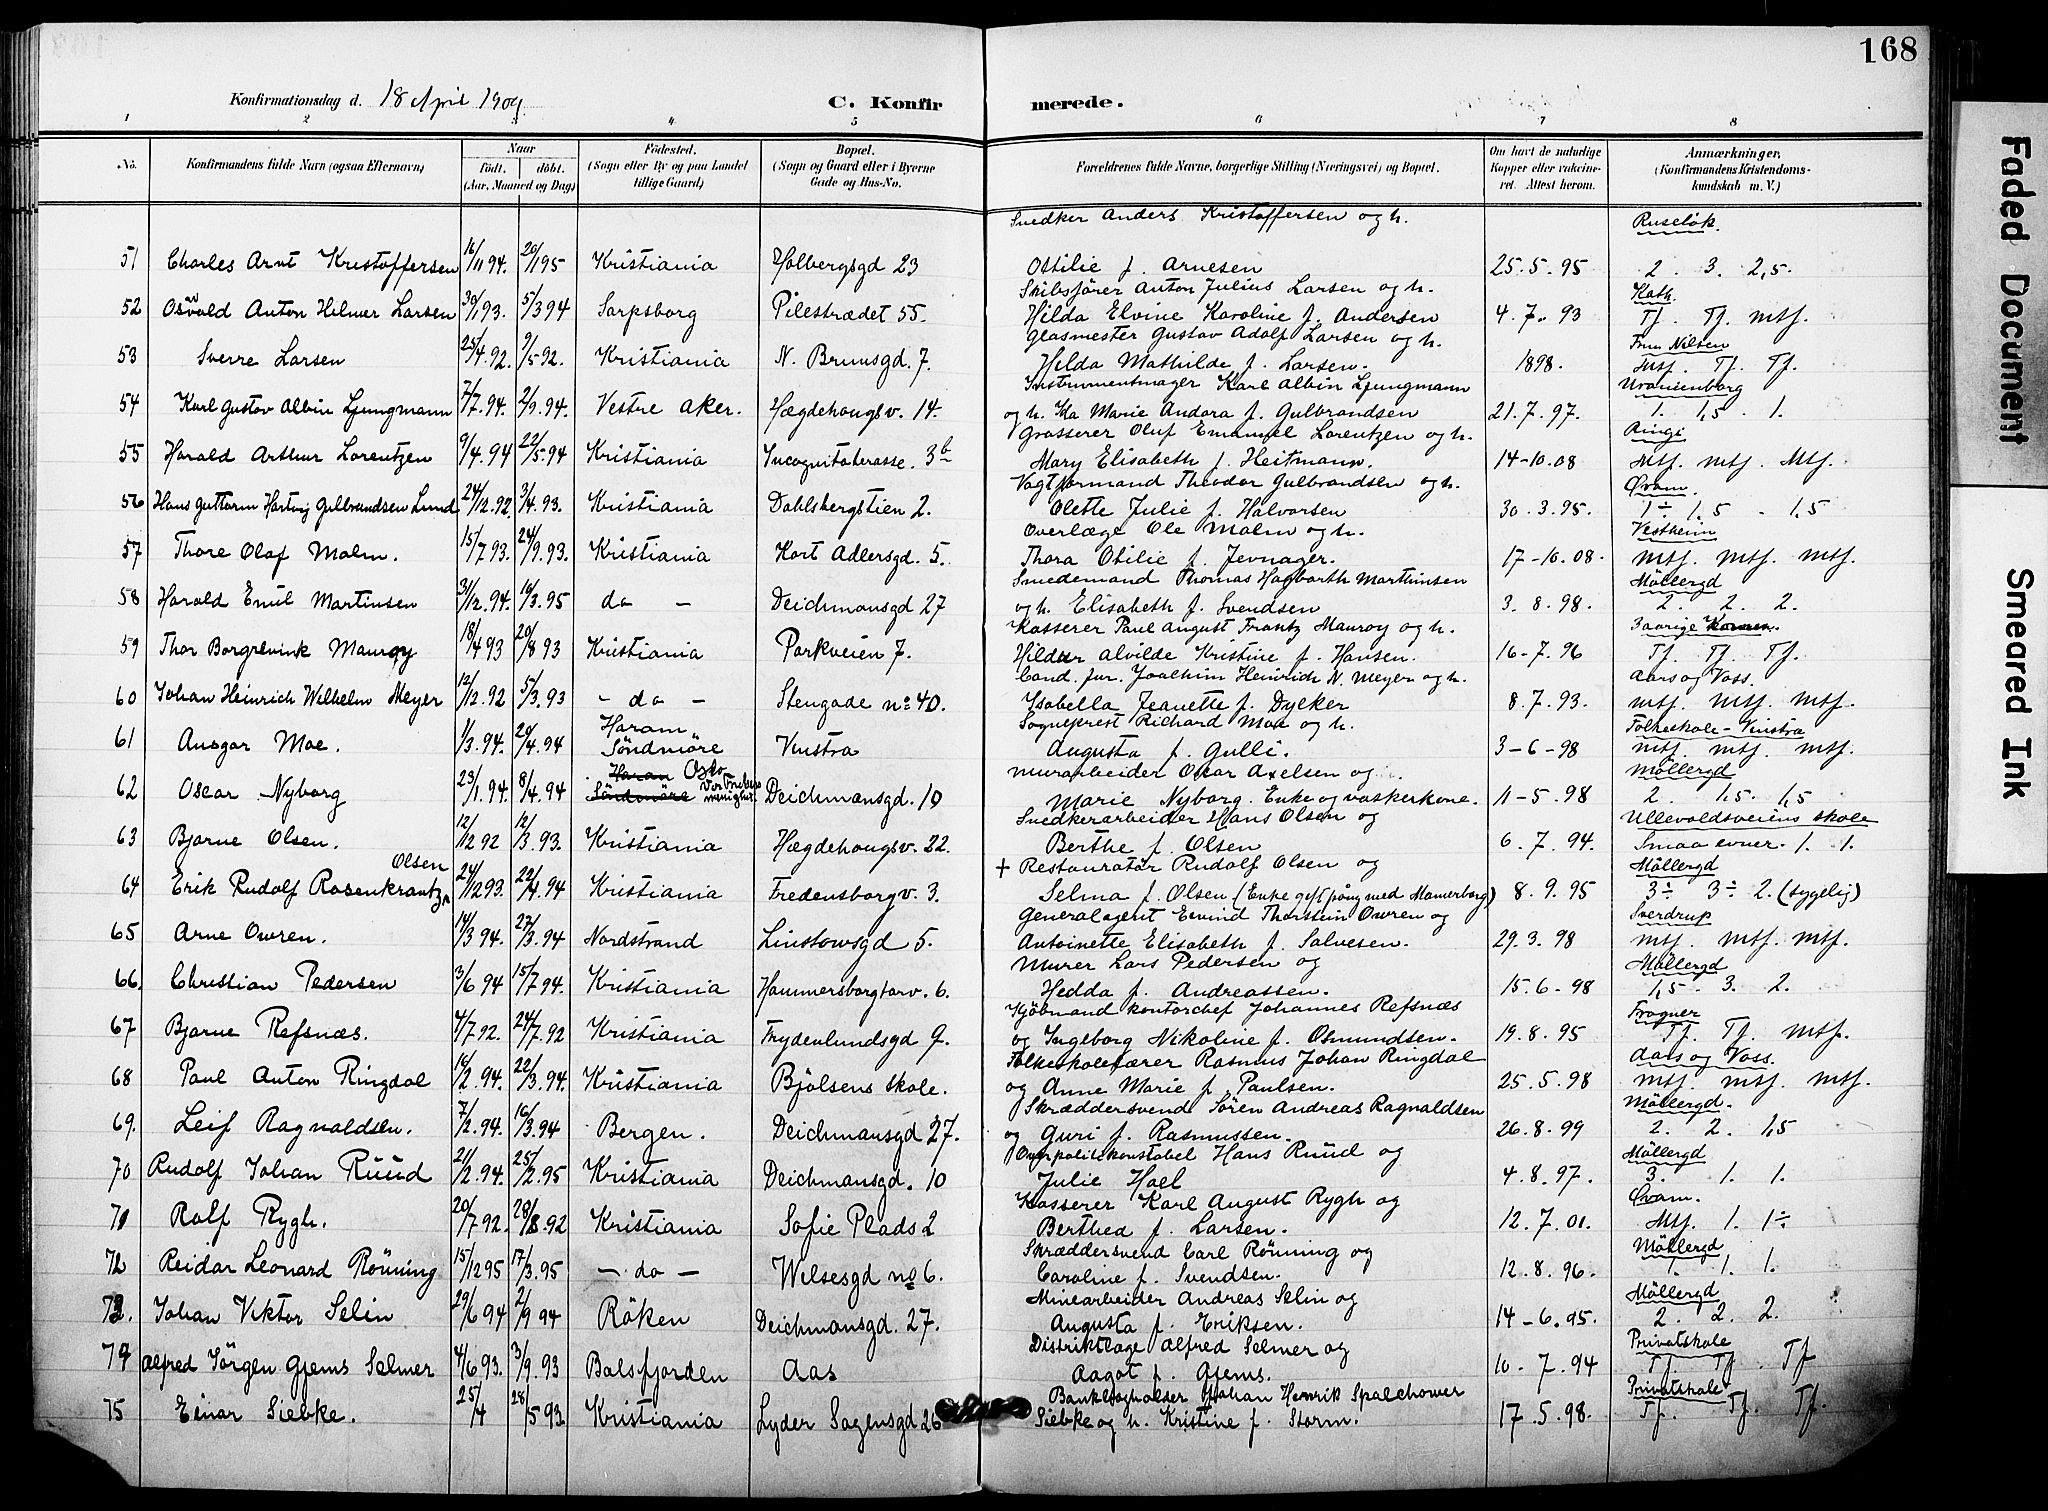 168
Konfirmationsdag d. 18 April 1909.
C. Konfirmerede.
1 2 3 4 5 6 7 8
No. Konfirmandens fulde Navn (ogsaa Efternavn) Naar født. døbt. (Aar, Maaned og Dag) Fødested. (Sogn eller By og paa Landet tillige Gaard) Bopæl. (Sogn og Gaard eller i Byerne Gade og Hus-No. Forældrenes fulde Navne, borgerlige Stilling (Næringsvei) og Bopæl. Om havt de naturlige Kopper eller vakcineret. Attest herom. Anmærkninger. (Konfirmandens Kristendomskundskab m. V.)
Snedker Anders Kristoffersen og h. Ruseløk.
51 Charles Arnt Kristoffersen 16/11 94. 20/1 95 Kristiania Holbergsgd 23 Ottilie f. Arnesen 25.5.95 2. 3. 2,5.
Skibsfører Anton Julius Larsen og h. Kath.
52 Osvald Anton Helmer Larsen 30/1 93. 5/3 94 Sarpsborg Pilestrædet 55. Hilda Elvine Karoline f. Andersen 4.7.93 Tf. Tf. mtf.
Glasmester Gustav Adolf Larsen og h. Frua Nilsen
53 Sverre Larsen 25/4 92. 9/5 92. Kristiania N. Brunsgd. 7. Hilda Mathilde f. Larsen. 1898. mtf. Tf. Tf.
Instrumentmager Karl Albin Ljungmann Uranienborg
54 Karl Gustav Albin Ljungmann 7/7 94. 2/9 94. Vestre Aker. Hægdehougsv. 14. og h. Ida Marie Andora f. Gulbrandsen 21.7.97. 1. 1,5. 1.
Grosserer Oluf Emanuel Lorentzen og h. Ringi
55 Harald Arthur Lorentzen 9/4 94 22/5 94 Kristiania Incognitoterasse. 3b Mary Elisabeth f. Heitmann. 14-10.08 Mtf. mtf. Mtf.
Vogtformand Theodor Gulbrandsen og h. Qvam.
56 Hans Guttorm Hartvig Gulbrandsen Lund 24/12 92. 3/4 93. Kristiania Dahlsbergstien 2. Olette Julie f. Halvorsen 30.3.95. 1÷ 1,5 - 1,5
Overlæge Ole Malm og h. Vestheim
57 Thore Olaf Malm. 15/7 93. 24/9 93. Kristiania Kort Adlersgd. 5. Thora Otilie f. Jevnager. 17-10.08. mtf. mtf. mtf.
Smedemand Thomas Hagbarth Marthinsen Möllergd
58 Harald Emil Martinsen 31/12 94. 10/3 95 do - Deichmansgd 27 og h. Elisabeth f. Svendsen 3.8.98. 2. 2. 2.
Kasserer Paul August Frantz Mauroy og h. 3aarige
59 Thor Borgrevink Mauroy 18/4 93 20/8 93 Kristiania Parkveien 7. Hildur Alvilde Kristine f. Hansen. 16-7.96 Tf. Tf. Tf.
Cand. jur. Joachim Heinrich N. Meyer og h. Aars og Voss.
60 Johan Heinrich Wilhelm Meyer 12/12 92 5/3 93 - do - Stengade no: 40. Isabella Jeanette f. Dycker 8.7.93. mtf. mtf. mtf.
Sogneprest Richard Moe og h. Folkeskole-Vinstra
61 Ansgar Moe. 1/3 94. 20/4 94 Haram Söndmöre Vinstra Augusta f. Gulli. 3-6-98 mtf. mtf. mtf.
Murarbeider Oscar Axelsen og Möllergd
62 Oscar Nyborg 23/1 94. 8/4 94 Haram Söndmöre Oslo Deichmansgd. 10 Marie Nyborg. Enke og vaskerkone. 11-5.98 2. 1,5. 1,5
Snedkerarbeider Hans Olsen og Ullevoldsveiens skole
63 Bjarne Olsen. 12/12 92 12/3 93. Kristiania Hægdehougsv. 22. Berthe f. Olsen 6.7.94. Smaa evner. 1. 1.
+ Restauratør Rudolf Olsen og Möllergd
64 Erik Rudolf Rosenkrantz Olsen 24/12 93. 22/4 94 Kristiania Fredensborgv. 3. Selma f. Olsen (Enke gift pång med Mamerborg) 8.9.95 3÷ 3÷ 2. (sygelig)
Generalagent Eivind Thorstein Owren og Sverdrup
65 Arne Owren. 14/3 94. 27/3 94 Nordstrand Linstowsgd 5. Antoinette Elisabeth f. Salvesen. 29.3.98 mtf. mtf. mtf.
Murer Lars Pedersen og Möllergd
66. Christian Pedersen 3/6 94 15/7 94. Kristiania Hammersborgtorv. 6. Hedda f. Andreassen. 15.6-98 1,5. 3. 2.
Kjøbmand kontorchef Johannes Refsnæs Frogner
67 Bjarne Refsnæs. 4/7 92. 24/7 92 Kristiania Frydenlundsgd 9. og Ingeborg Nikoline f. Osmundsen. 19.8.95 Tf. Tf. mtf.
Folkeskolelærer Rasmus Johan Ringdal Aars og Voss.
68 Paul Anton Ringdal 16/2 94. 22/3 94. Kristiania Bjölsens skole. og Anne Marie f. Paulsen. 25.5.98 mtf. mtf. mtf.
Skræddersvend Sören Andreas Ragnaldsen Möllergd.
69. Leif Ragnaldsen. 7/2 94. 16/3 94 Bergen. Deichmansgd 27. og Guri f. Rasmussen. 26.8.99 2. 2. 1,5
Overpolitikonstabel Hans Ruud og Möllergd
70 Rudolf Johan Ruud 21/2 94. 25/2 95 Kristiania Deichmansgd. 10 Julie Hoel 4.8.97. 3. 1. 1.
Kasserer Karl August Rygh og Qvam.
71 Rolf Rygh. 20/7 92. 28/8 92 Kristiania Sofie Plads 2 Berthea f. Larsen. 12.7.01. Mtf. 1. 1÷
Skræddersvend Carl Rönning og Möllergd
72 Reidar Leonard Rönning 15/12 95 17/3 95 - do - Wilsesgd no 6. Caroline f. Svendsen. 12.8.96. 1. 1. 1.
Minearbeider Andreas Selin og Möllergd
73. Johan Viktor Selin 29/6 94 2/9 94 Röken Deichmansgd. 27. Augusta f. Eriksen. 14-6.95. 2. 2. 2.
Distriktlæge Alfred Selmer og Privatskole
74 Alfred Jörgen Gjems Selmer 4/6 93. 3/9 93 Balsfjorden Aas Aagot f. Gjems. 10-7.94 Tf. Tf. Tf
Bankbogholder Johan Henrik Spalchower Privatskole
75 Einar Siebke. 25/4 28/5 93. Kristiania Lyder Sagensgd 26 Siebke og h. Kristine f. Storm. 17.5.98. Tf. Tf. Tf.
Faded Document
Smeared Ink